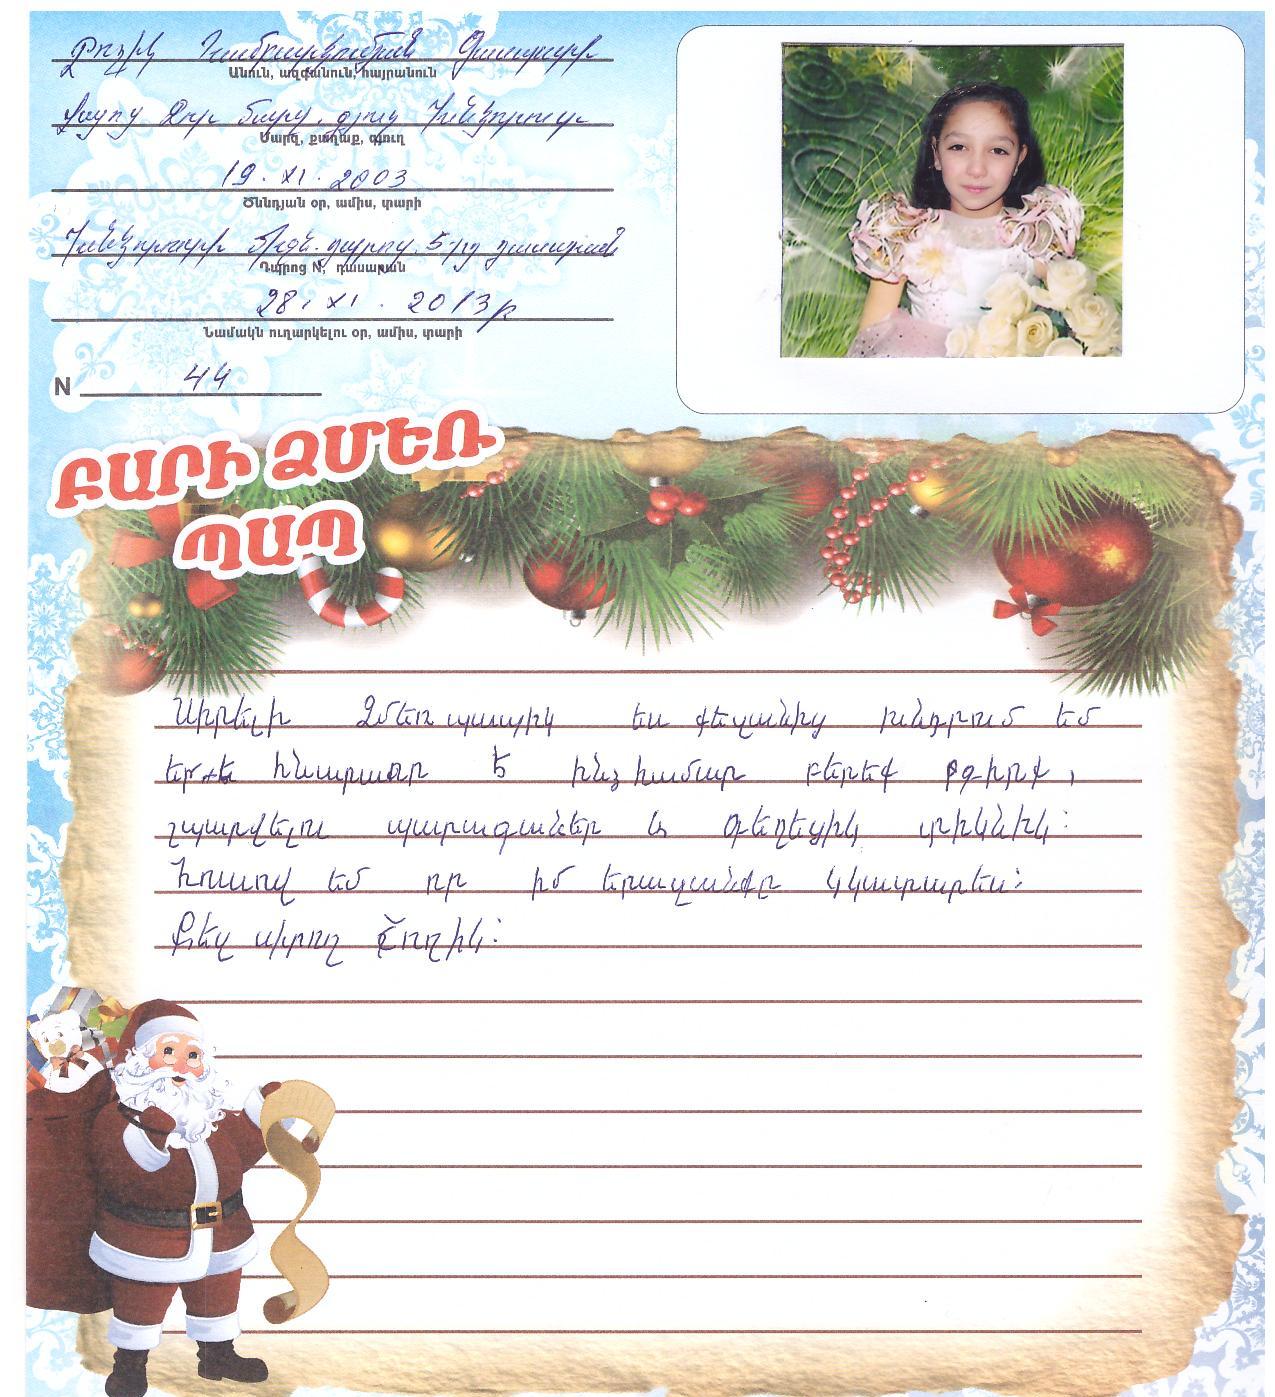 Անուն, ազգանուն, հայրանուն
Վայոց Ձոր մարզ. գյուղ Խնձորուտ
Մարզ, քաղաք, գյուղ
19. XI. 2003
Ծննդյան օր, ամիս, տարի
Խնձորուտի միջն. դպրոց. 5-րդ դասարան
Դպրոց N, դասարան
28. XI. 2013թ
Նամակն ուղարկելու օր, ամիս, տարի
N 44
ԲԱՐԻ ՁՄԵՌ
ՊԱՊ
Սիրելի Ձմեռ պապիկ ես քեզանից խնդրում եմ
եթե հնարավոր է ինձ համար բերեք
շպարվելու պարագաներ և գեղեցիկ տիկնիկ:
Հուսով եմ որ իմ երազանքը կկատարես:
Քեզ սիրող